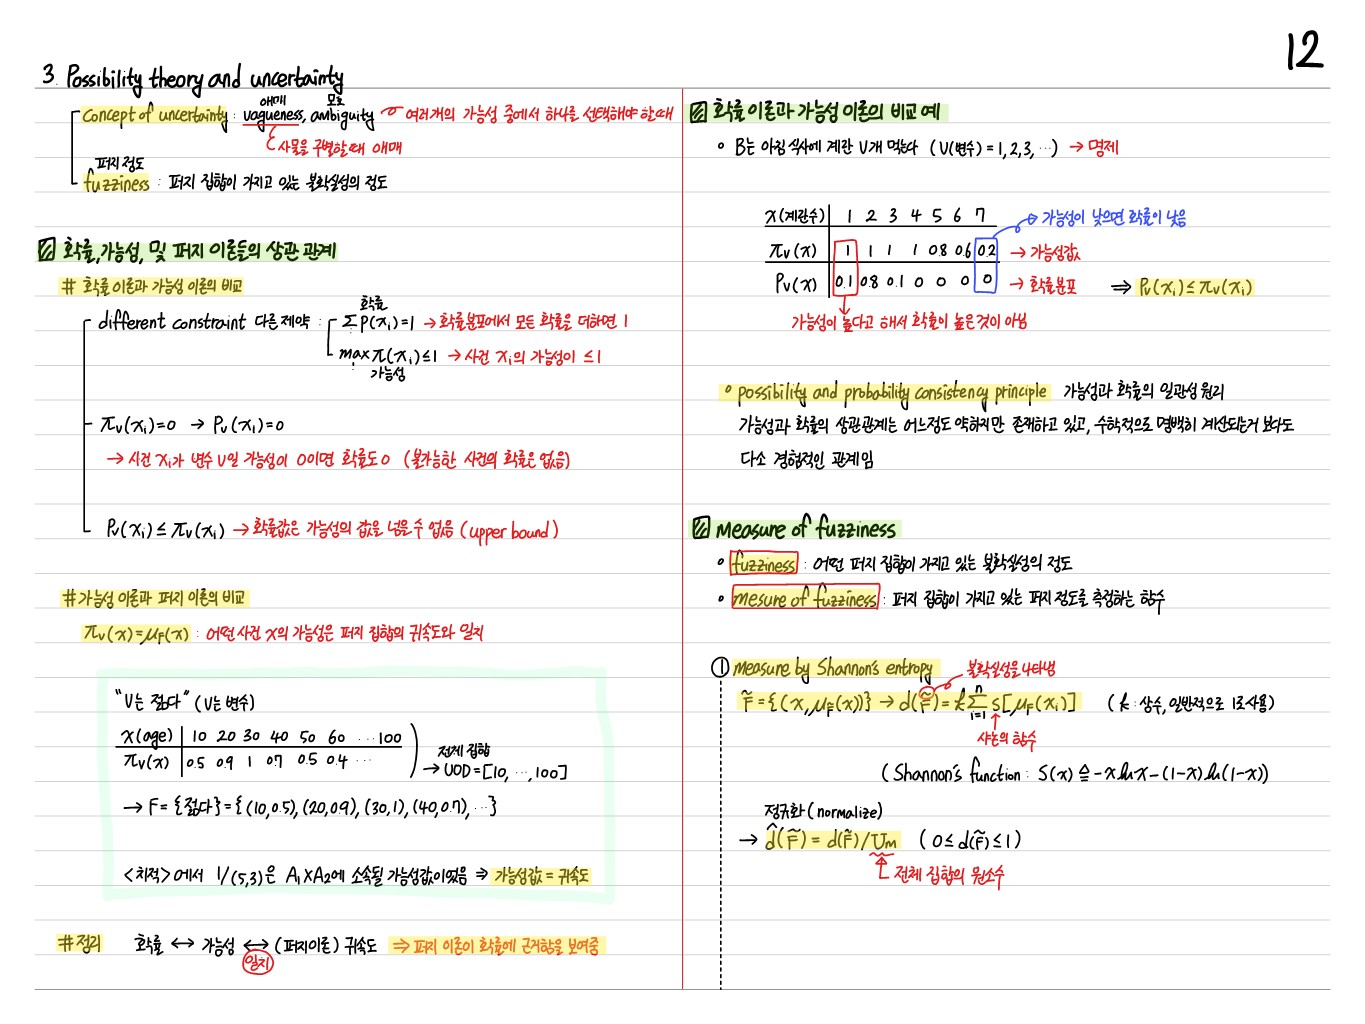 12
3. Possibility theory and uncertainty
애매 모호
concept of uncertainty : vagueness, ambiguity 여러개의 가능성 중에서 하나를 선택해야 할 때
사물을 구별할 때 애매
퍼지 정도
fuzziness : 퍼지 집합이 가지고 있는 불확실성의 정도
확률, 가능성, 및 퍼지 이론들의 상관 관계
# 확률 이론과 가능성 이론의 비교
확률
different constraint 다른 제약 : ∑P(xᵢ)=1 → 확률분포에서 모든 확률을 더하면 1
max π(xᵢ)≤1 → 사건 xᵢ의 가능성이 ≤1
가능성
πv(xᵢ)=0 → Pv(xᵢ)=0
→ 사건 xᵢ가 변수 V일 가능성이 0이면 확률도 0 (불가능한 사건의 확률은 없음)
Pv(xᵢ)≤πv(xᵢ) → 확률값은 가능성의 값을 넘을 수 없음 (upper bound)
# 가능성 이론과 퍼지 이론의 비교
πv(x)=μF(x) : 어떤 사건 x의 가능성은 퍼지 집합의 귀속도와 일치
"V는 젊다" (V는 변수)
x(age) 10 20 30 40 50 60 ⋯100
πv(x) 0.5 0.9 1 0.7 0.5 0.4 ⋯
전체 집합
→ UOD=[10, ⋯, 100]
→ F={젊다}={(10,0.5), (20,0.9), (30,1), (40,0.7), ⋯}
<치적>에서 1/(5,3)은 A₁×A₂에 소속될 가능성값이었음 ⇒ 가능성값 = 귀속도
# 정리 확률 ↔ 가능성 ↔ (퍼지이론) 귀속도 ⇒ 퍼지 이론이 확률에 근거함을 보여줌
일치
확률 이론과 가능성 이론의 비교 예
• B는 아침 식사에 계란 V개 먹는다 (V(변수)=1,2,3, ⋯) → 명제
x(계란수) 1 2 3 4 5 6 7 가능성이 낮으면 확률이 낮음
πv(x) 1 1 1 1 0.8 0.6 0.2 → 가능성값
Pv(x) 0.1 0.8 0.1 0 0 0 0 → 확률분포 ⇒ Pv(xᵢ)≤πv(xᵢ)
가능성이 높다고 해서 확률이 높은것이 아님
• possibility and probability consistency principle 가능성과 확률의 일관성 원리
가능성과 확률의 상관관계는 어느정도 약하지만 존재하고 있고, 수학적으로 명백히 계산되는거 보다도
다소 경험적인 관계임
measure of fuzziness
• fuzziness : 어떤 퍼지 집합이 가지고 있는 불확실성의 정도
• mesure of fuzziness : 퍼지 집합이 가지고 있는 퍼지 정도를 측정하는 함수
① measure by Shannon's entropy 불확실성을 나타냄
F̃={(x,μF(x))} → d(F̃)=k∑ⁿᵢ₌₁ s[μF(xᵢ)] (k : 상수, 일반적으로 1로 사용)
샤논의 함수
(Shannon's function : S(x)≙-xlnx-(1-x)ln(1-x))
정규화 (normalize)
→ d̂(F̃)=d(F̃)/Um (0≤d(F̃)≤1)
전체 집합의 원소수